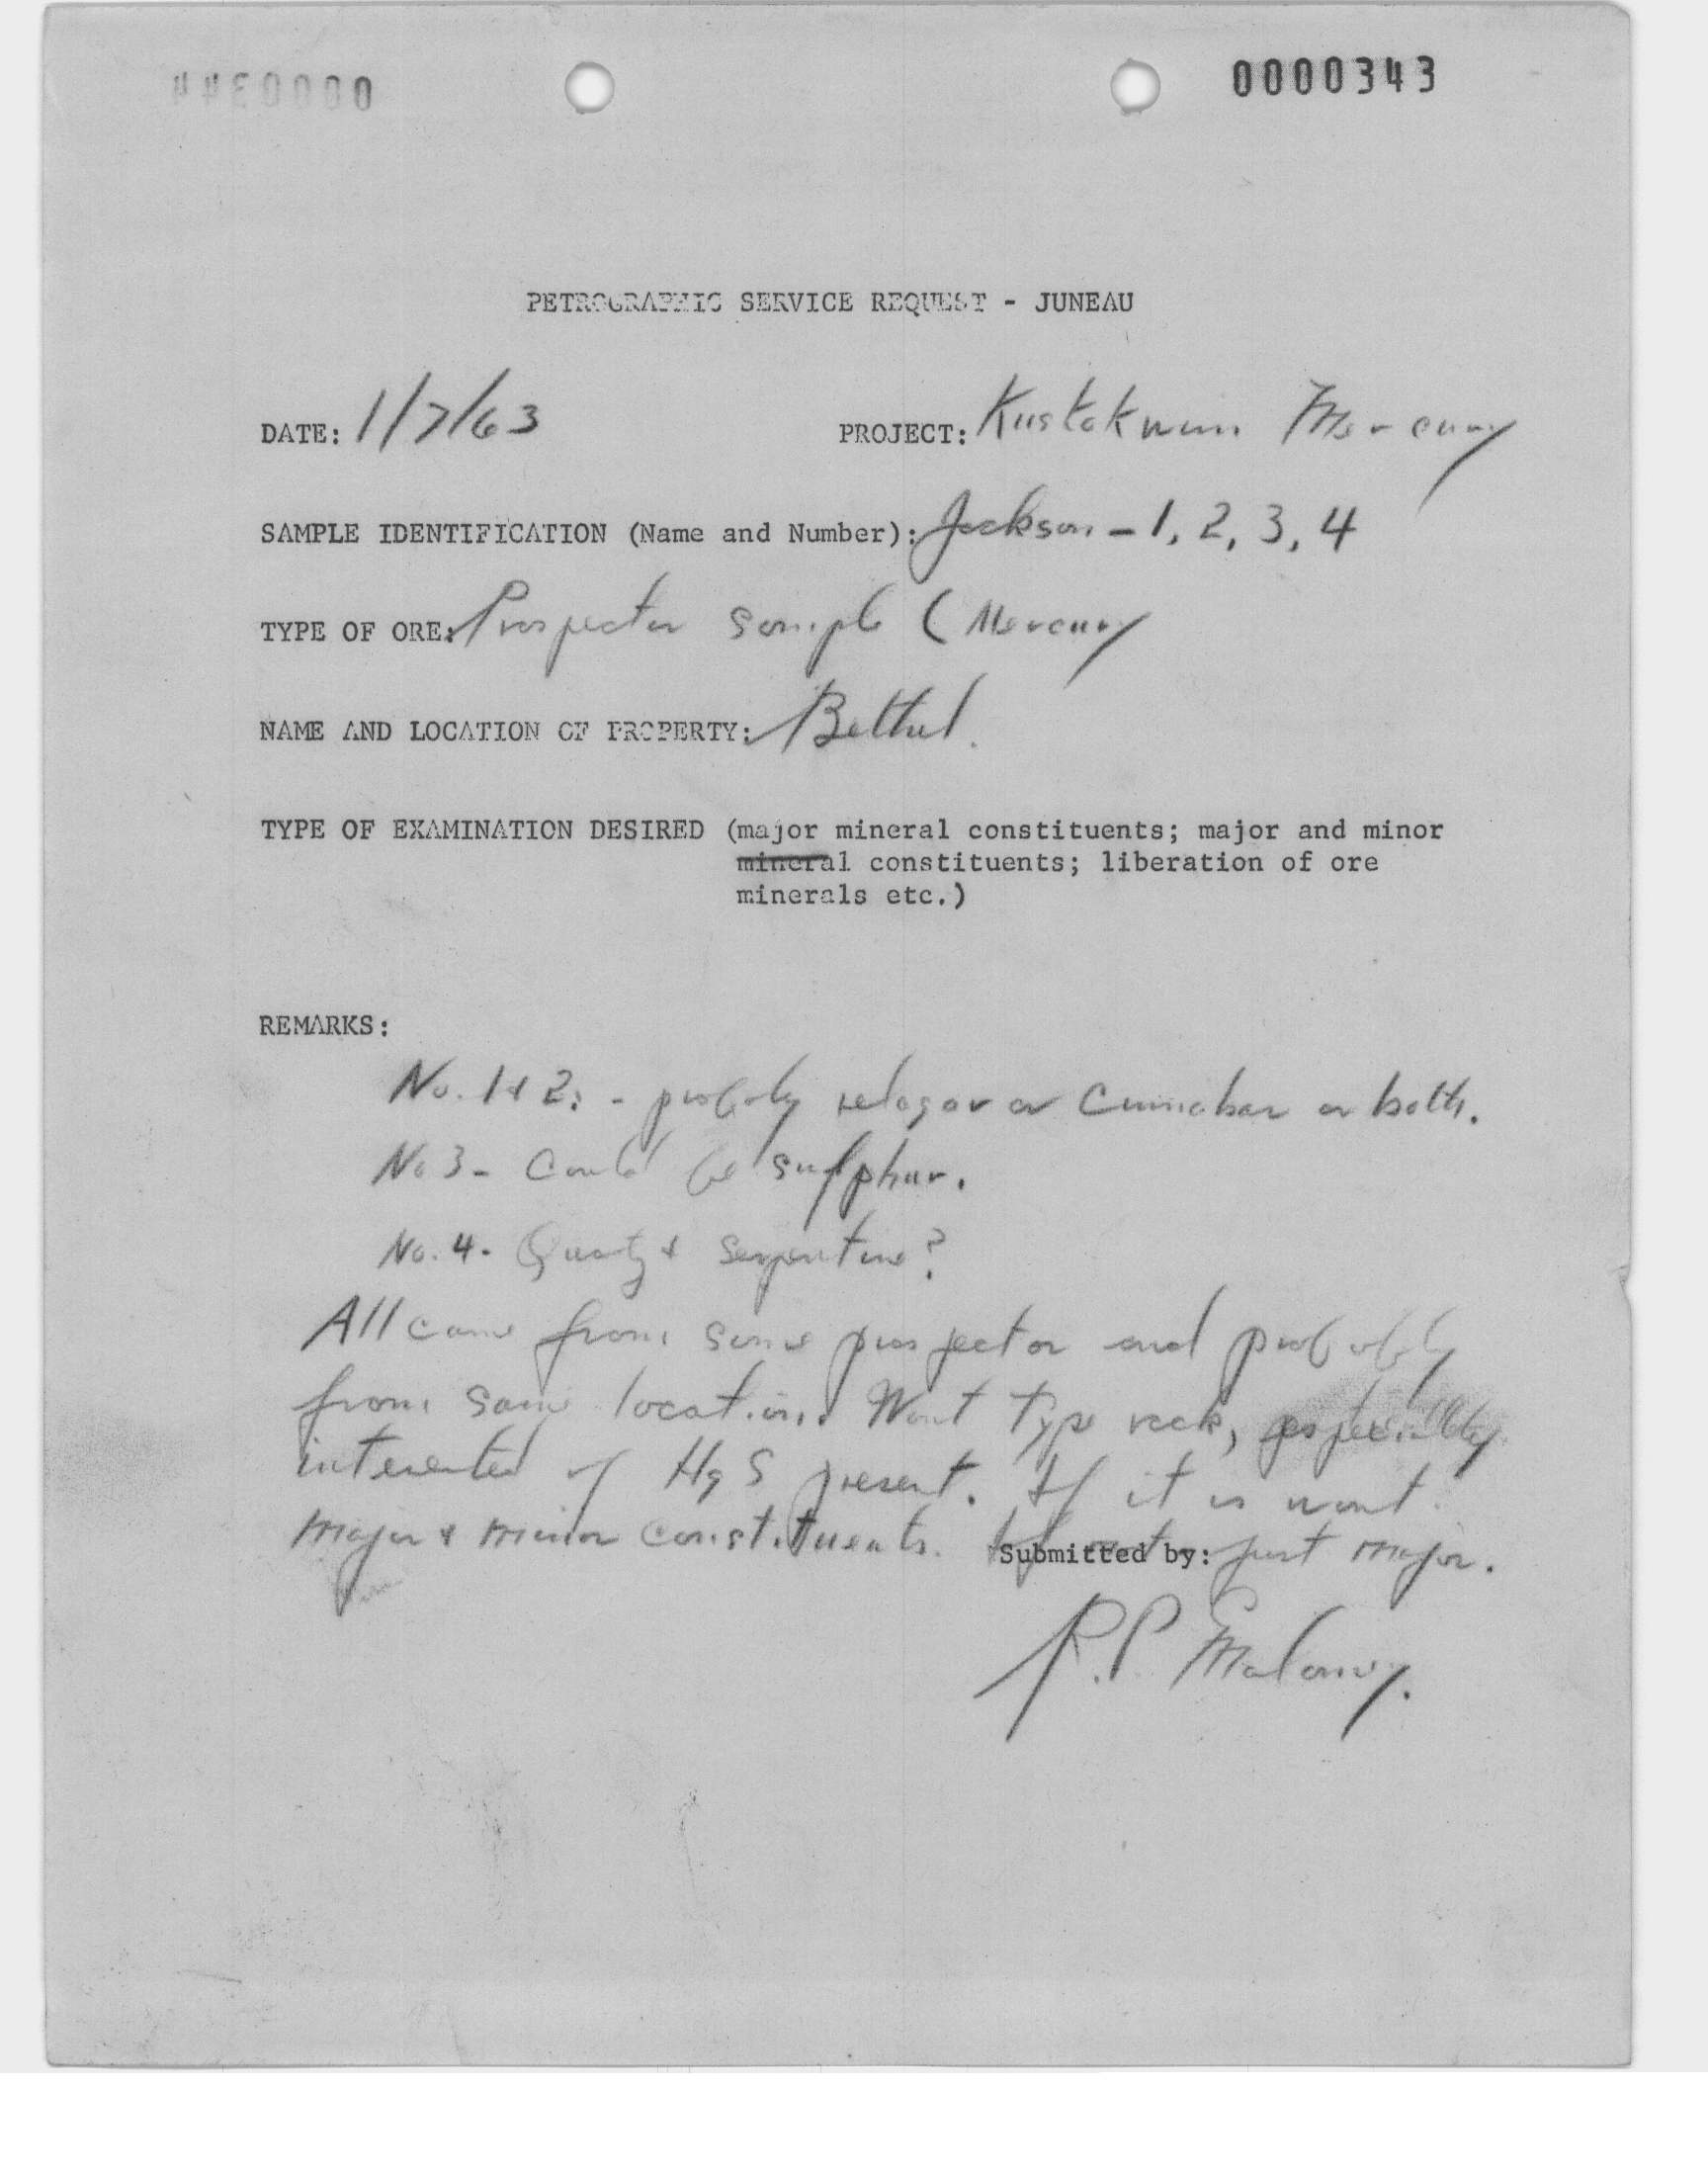 0000343
PETROGRAPHIC SERVICE REQUEST - JUNEAU
DATE: 1/7/63 PROJECT: Kuskokwim Mercury
SAMPLE IDENTIFICATION (Name and Number): Jackson - 1, 2, 3, 4
TYPE OF ORE: Prospector sample (Mercury
NAME AND LOCATION OF PROPERTY: Bethel.
TYPE OF EXAMINATION DESIRED (major mineral constituents; major and minor
mineral constituents; liberation of ore
minerals etc.)
REMARKS:
No. 1 & 2: - probably relagar or Cinnabar or both.
No 3 - Could be sulphur.
No. 4. Quartz & serpentine?
All came from same prospector and probably
from same location. Want type rock, especially
interested if HgS present. If it is want
Major & minor constituents. If not - just major.
Submitted by:
R.P. Maloney.